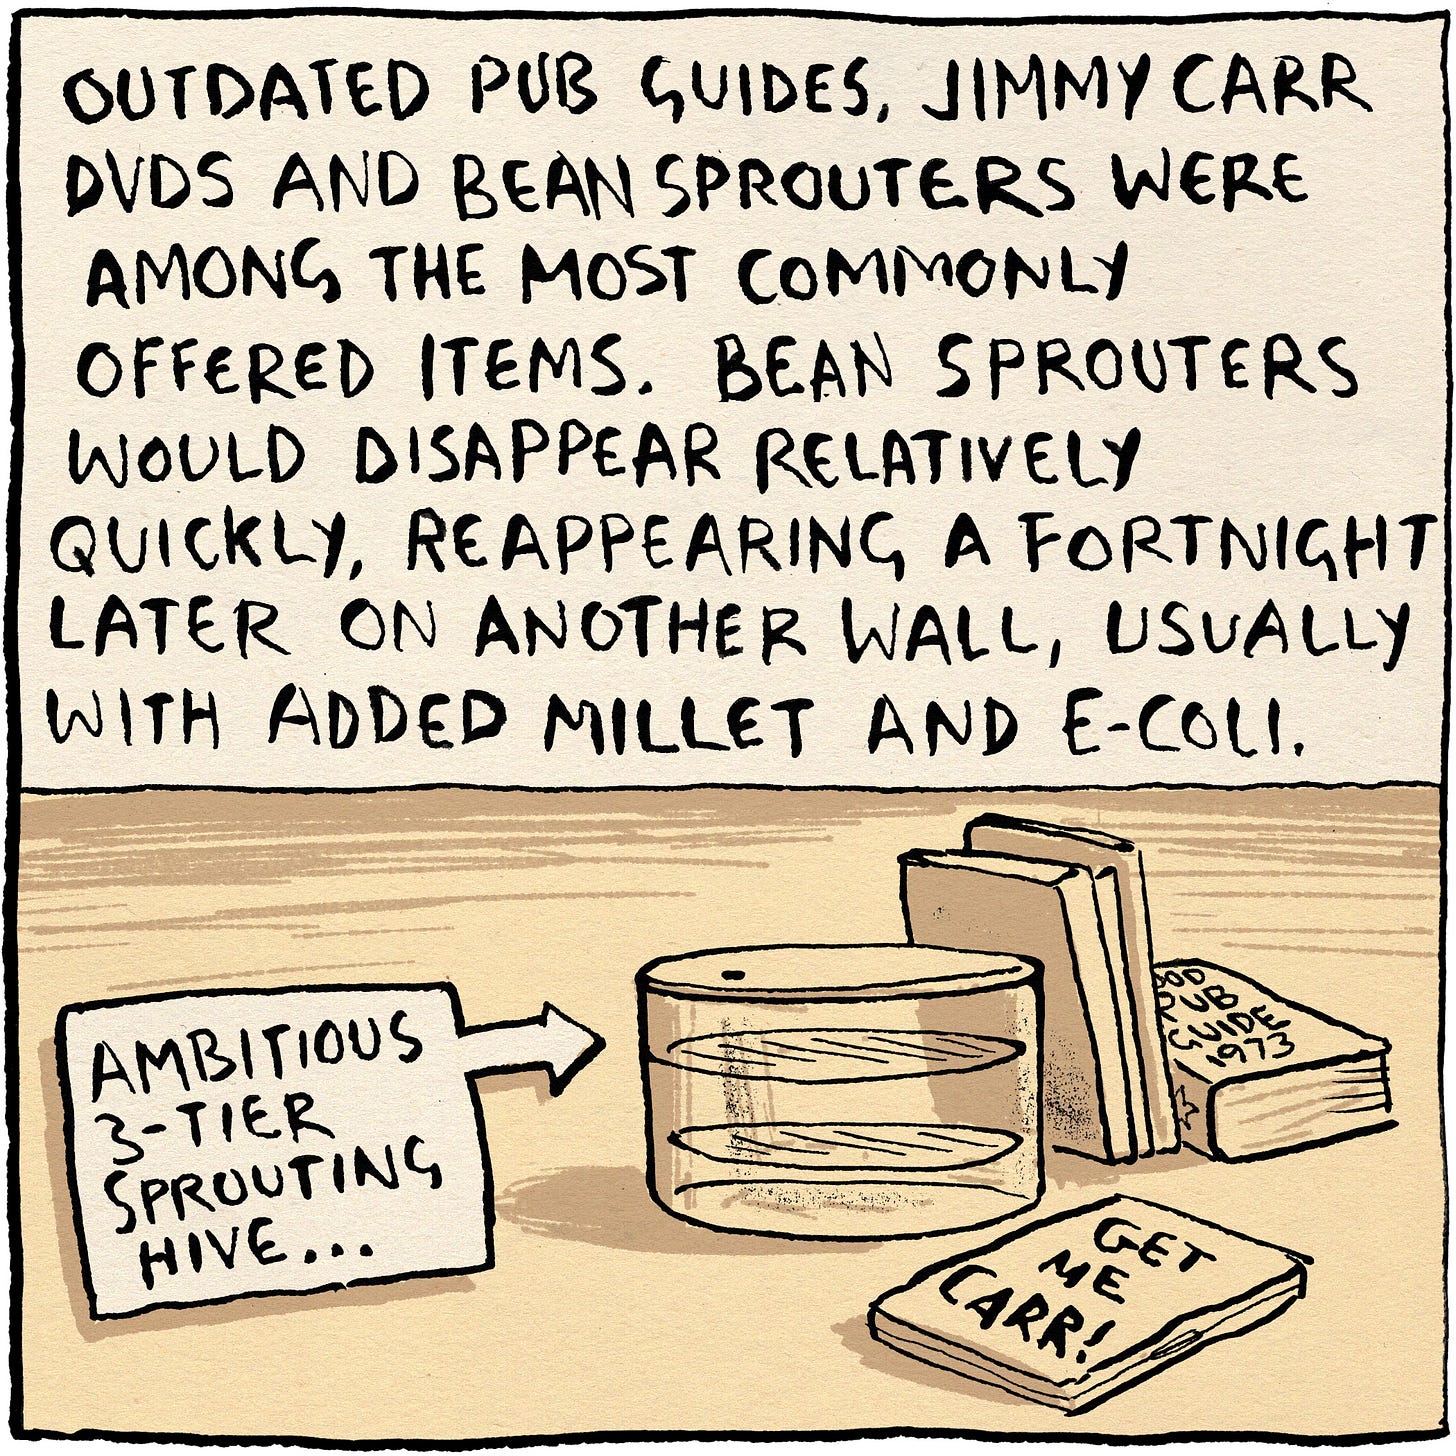 OUTDATED PUB GUIDES, JIMMY CARR
DVDS AND BEAN SPROUTERS WERE
AMONG THE MOST COMMONLY
OFFERED ITEMS. BEAN SPROUTERS
WOULD DISAPPEAR RELATIVELY
QUICKLY, REAPPEARING A FORTNIGHT
LATER ON ANOTHER WALL, USUALLY
WITH ADDED MILLET AND E-COLI.
AMBITIOUS
3-TIER
SPROUTING
HIVE...
OOD
PUB
GUIDE
1973
GET
ME
CARR!